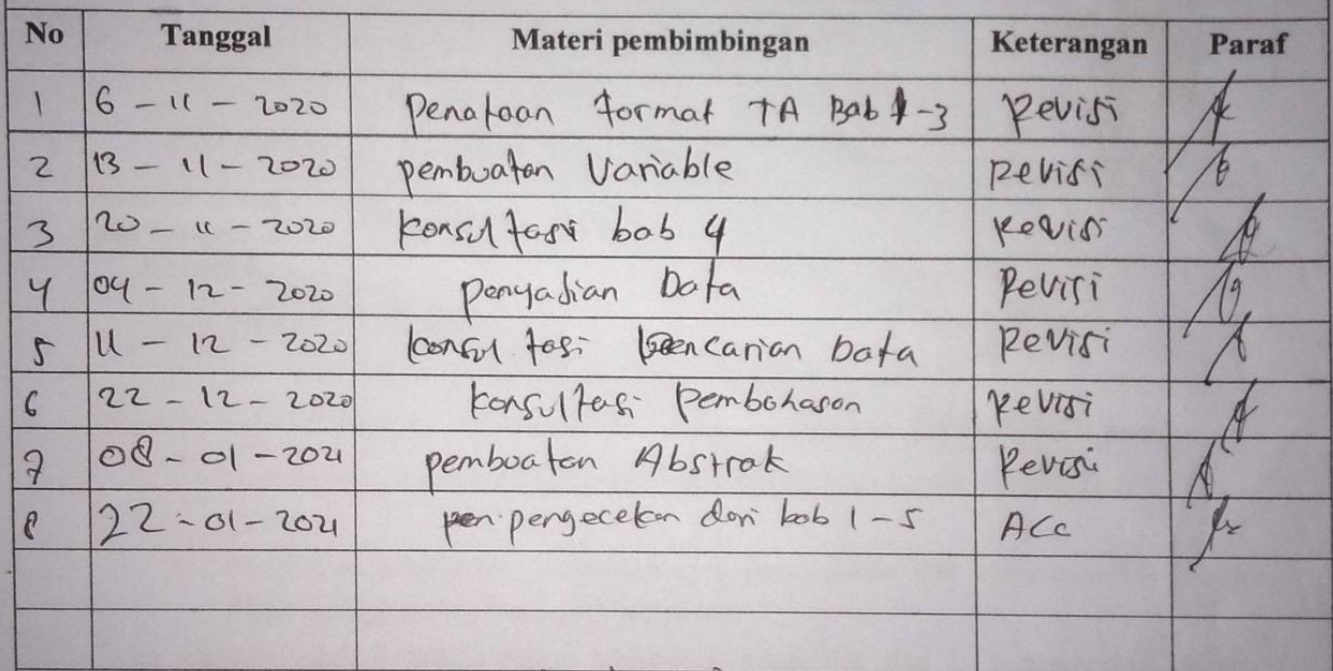 No Tanggal Materi pembimbingan Keterangan Paraf
1 6 - 11 - 2020 Penataan format TA Bab 1-3 Revisi
2 13 - 11 - 2020 pembuatan Variable Revisi
3 20 - 11 - 2020 konsultasi bab 4 Revisi
4 04 - 12 - 2020 penyajian Data Revisi
5 11 - 12 - 2020 konsultasi pencarian Data Revisi
6 22 - 12 - 2020 konsultasi Pembahasan Revisi
7 08 - 01 - 2021 pembuatan Abstrak Revisi
8 22 - 01 - 2021 pengecekan dari bab 1 - 5 ACC